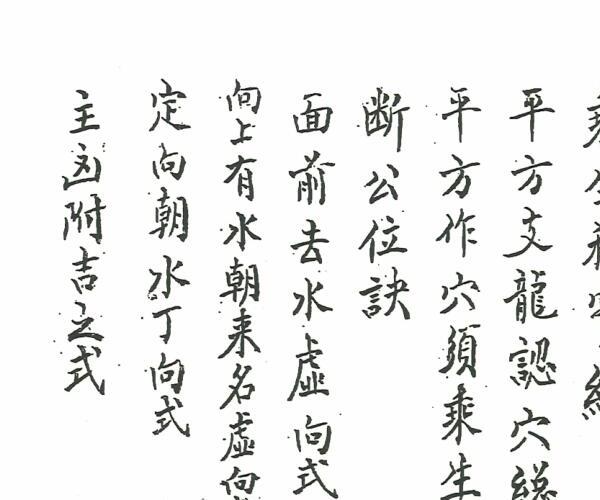 平方支龍認穴総
平方作穴須乘生
断公位訣
面前去水虛向式
向上有水朝来名虛向
定向朝水丁向式
主凶附吉之式